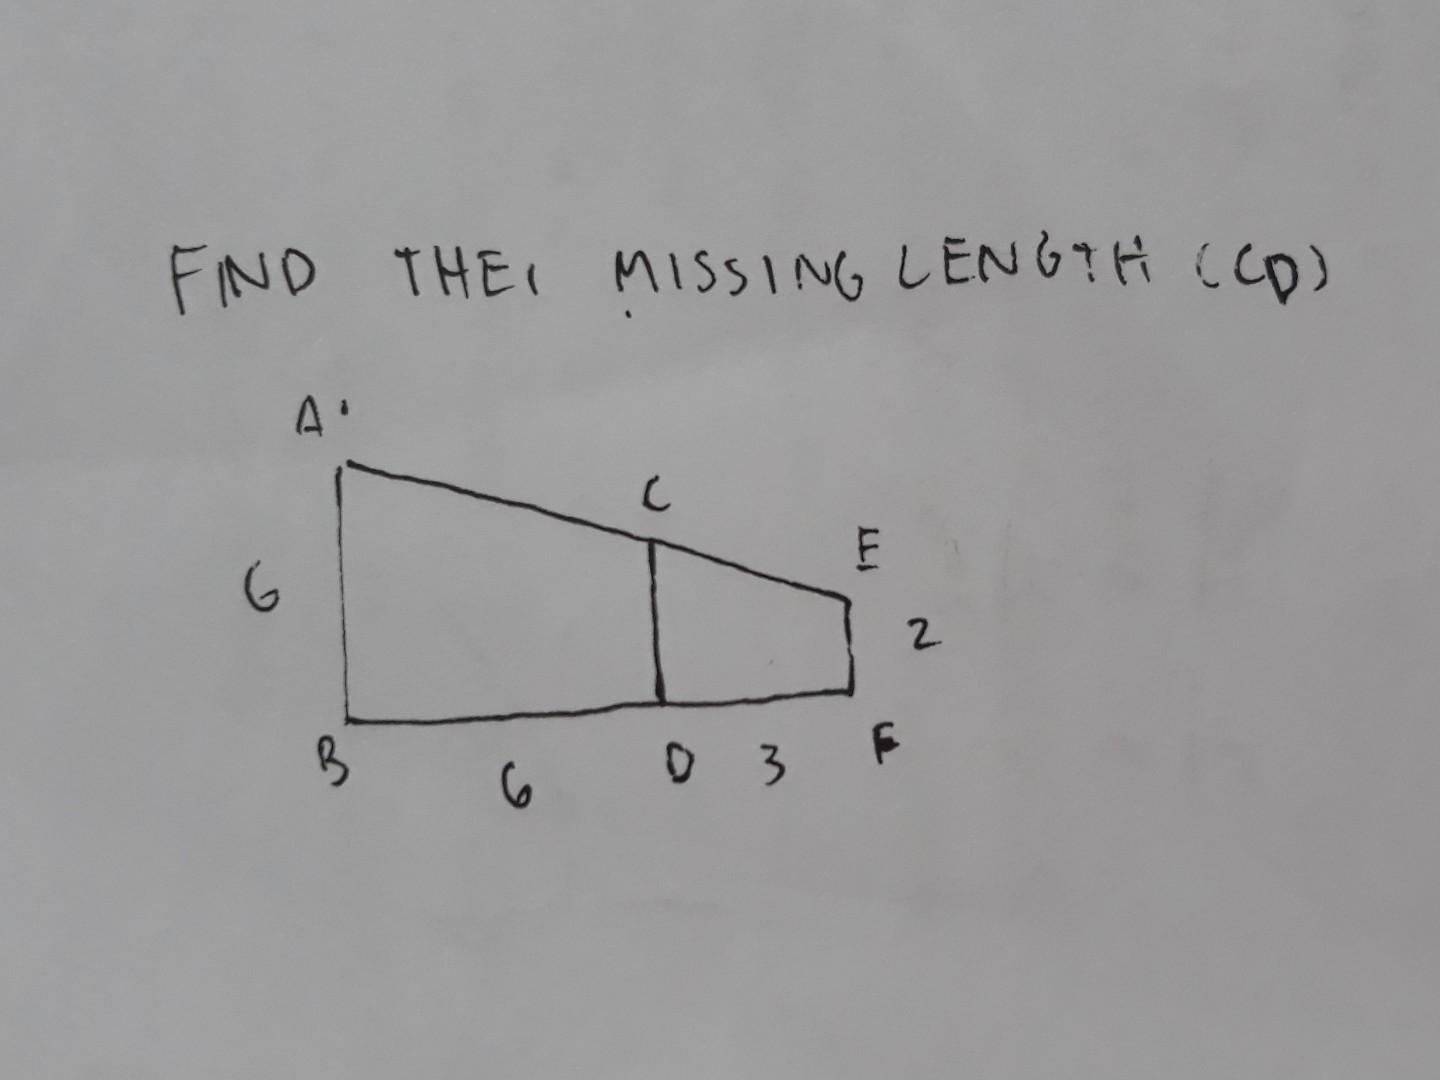 FIND THE MISSING LENGTH (CD)
A
C
E
6
2
B
6
D
3
F